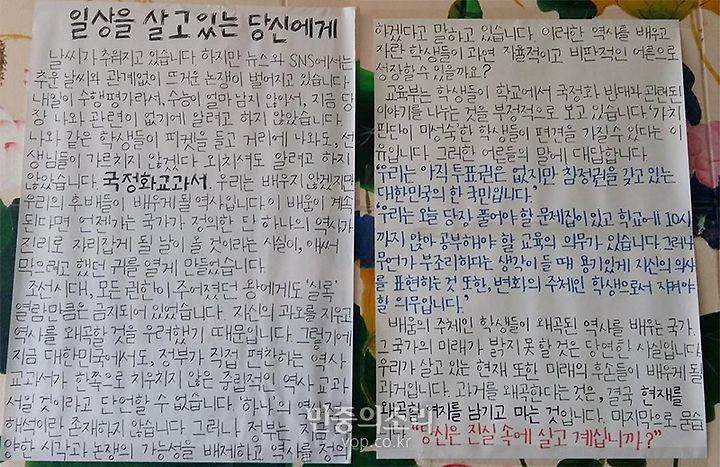 일상을 살고있는 당신에게
날씨가 추워지고 있습니다. 하지만 뉴스와 SNS에서는
추운 날씨와 관계없이 뜨거운 논쟁이 벌어지고 있습니다.
내일이 수행평가라서, 수능이 얼마 남지 않아서, 지금 당
장 나와 관련이 없기에 알려고 하지 않았습니다.
나와 같은 학생들이 피켓을 들고 거리에 나와도, 선
생님들이 가르치지 않겠다 외치셔도 알려고 하지
않았습니다. 국정화교과서. 우리는 배우지 않겠지만
우리의 후배들이 배우게 될 역사입니다. 이 배움이 계속
된다면 언젠가는 국가가 정의한 단 하나의 역사가
진리로 자리잡게 될 날이 올 것이라는 사실이, 애써
막으려고 했던 귀를 열게 만들었습니다.
조선시대, 모든 권한이 주어졌던 왕에게도 '실록'
열람만큼은 금지되어 있었습니다. 자신의 과오를 지우고
역사를 왜곡할 것을 우려했기 때문입니다. 그렇기에
지금 대한민국에서도, 정부가 직접 편찬하는 역사
교과서가 한쪽으로 치우치지 않은 중립적인 역사 교과
서일 것이라고 단언할 수 없습니다. '하나'의 역사
해석이란 존재하지 않습니다. 그러나 정부는 지금 다
양한 시각과 논쟁의 가능성을 배제하고 역사를 정의
하겠다고 말하고 있습니다. 이러한 역사를 배우고
자란 학생들이 과연 자율적이고 비판적인 어른으로
성장할 수 있을까요?
교육부는 학생들이 학교에서 국정화 반대와 관련된
이야기를 나누는 것을 부정적으로 보고 있습니다. '가치
판단이 미성숙한 학생들이 편견을 가질 수 있다'는 이
유입니다. 그러한 어른들의 말에 대답합니다.
'우리는 아직 투표권은 없지만 참정권을 갖고 있는
대한민국의 한 국민입니다.'
'우리는 오늘 당장 풀어야할 문제집이 있고 학교에 10시
까지 앉아 공부해야 할 교육의 의무가 있습니다. 그러나
무언가 부조리하다는 생각이 들 때 용기있게 자신의 의사
를 표현하는 것 또한, 변화의 주체인 학생으로서 지켜야
할 의무입니다.'
배움의 주체인 학생들이 왜곡된 역사를 배우는 국가.
그 국가의 미래가 밝지 못할 것은 당연한 사실입니다.
우리가 살고 있는 현재 또한 미래의 후손들이 배우게 될
과거입니다. 과거를 왜곡한다는 것은, 결국 현재를
왜곡할 여지를 남기고 마는 것입니다. 마지막으로 묻습
"당신은 진실 속에 살고 계십니까?"
민중의소리
vop.co.kr